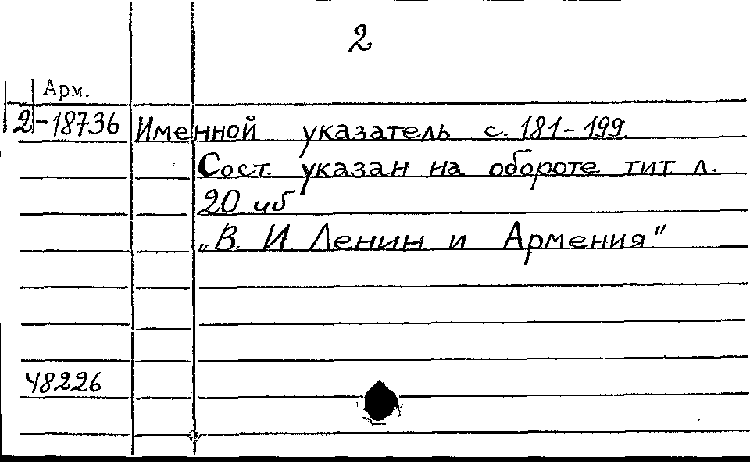 2
Арм.
2-18736 Именной указатель с. 181-199.
Сост. указан на обороте тит л.
20 иб
„В. И Ленин и Армения"
48226